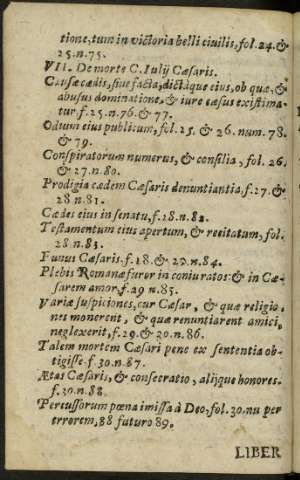 tione, tum in victoria belli civilis, fol. 24. &
25. n. 75.
VII. De morte C. Iulij Cæsaris.
Causæ cædis, sive facta, dictáque eius, ob quæ, &
abusus dominatione, & iure cæsus existima-
tur f. 25. n. 76. & 77.
Odium eius publicum, fol. 25. & 26. num. 78.
& 79.
Conspiratorum numerus, & consilia, fol. 26.
& 27. n. 80.
Prodigia cædem Cæsaris denuntiantia. f. 27. &
28 n. 81.
Cædes eius in senatu, f. 28. n. 82.
Testamentum eius apertum, & recitatum, fol.
28 n. 83.
Funus Cæsaris. f. 18. & 29. n. 84.
Plebis Romanæ furor in coniuratos: & in Cæ-
sarem amor. f. 29 n. 85.
Variæ suspiciones, cur Cæsar, & quæ religio-
nes monerent, & quæ renuntiarent amici,
neglexerit, f. 29. & 30. n. 86.
Talem mortem Cæsari pene ex sententia ob-
tigisse f. 30. n. 87.
Ætas Cæsaris, & consecratio, alijque honores.
f. 30. n. 88.
Percussorum pœna imissa à Deo, fol. 30. nu per
errorem, 88 futuro 89.
LIBER